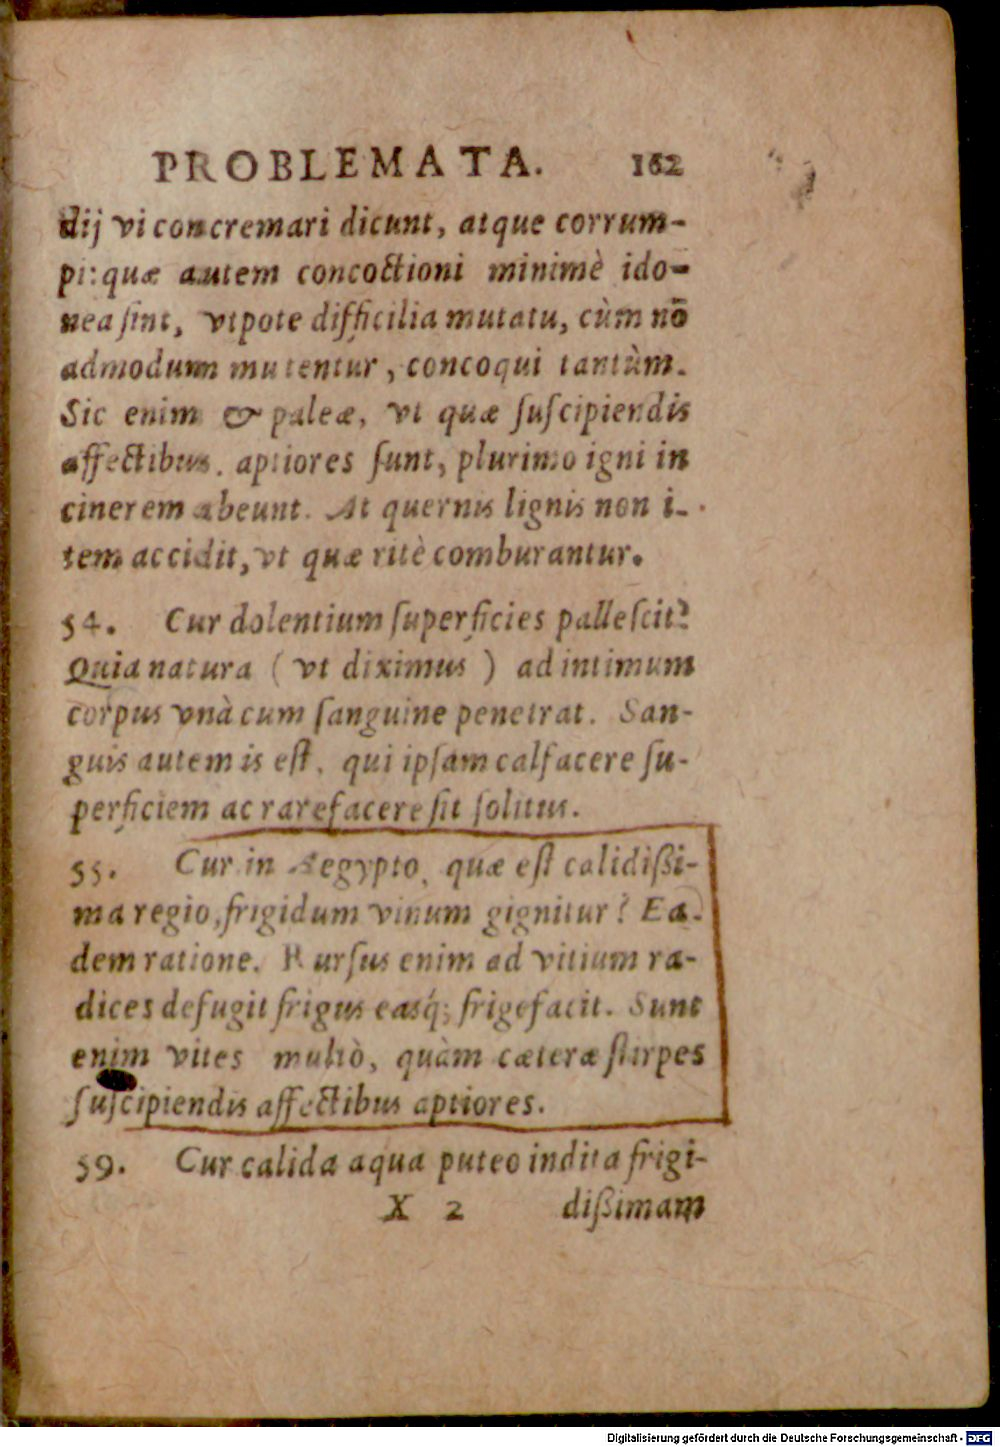 PROBLEMATA. 162
dij vi concremari dicunt, atque corrum-
pi: quæ autem concoctioni minimè ido-
nea ſint, vtpote difficilia mutatu, cùm nō
admodum mutentur, concoqui tantùm.
Sic enim & paleæ, vt quæ ſuſcipiendis
affectibus. aptiores ſunt, plurimo igni in
cinerem abeunt. At quernis lignis non i-
tem accidit, vt quæ ritè comburantur.
54. Cur dolentium ſuperficies palleſcit?
Quia natura ( vt diximus ) ad intimum
corpus vnà cum ſanguine penetrat. San-
guis autem is eſt, qui ipſam calfacere ſu-
perficiem ac rarefacere ſit ſolitus.
55. Cur in Aegypto, quæ eſt calidißi-
ma regio, frigidum vinum gignitur? Ea-
dem ratione. Rurſus enim ad vitium ra-
dices defugit frigus easq́; frigefacit. Sunt
enim vites multò, quàm cæteræ ſtirpes
ſuſcipiendis affectibus aptiores.
59. Cur calida aqua puteo indita frigi-
X 2 dißimam
Digitalisierung gefördert durch die Deutsche Forschungsgemeinschaft - DFG